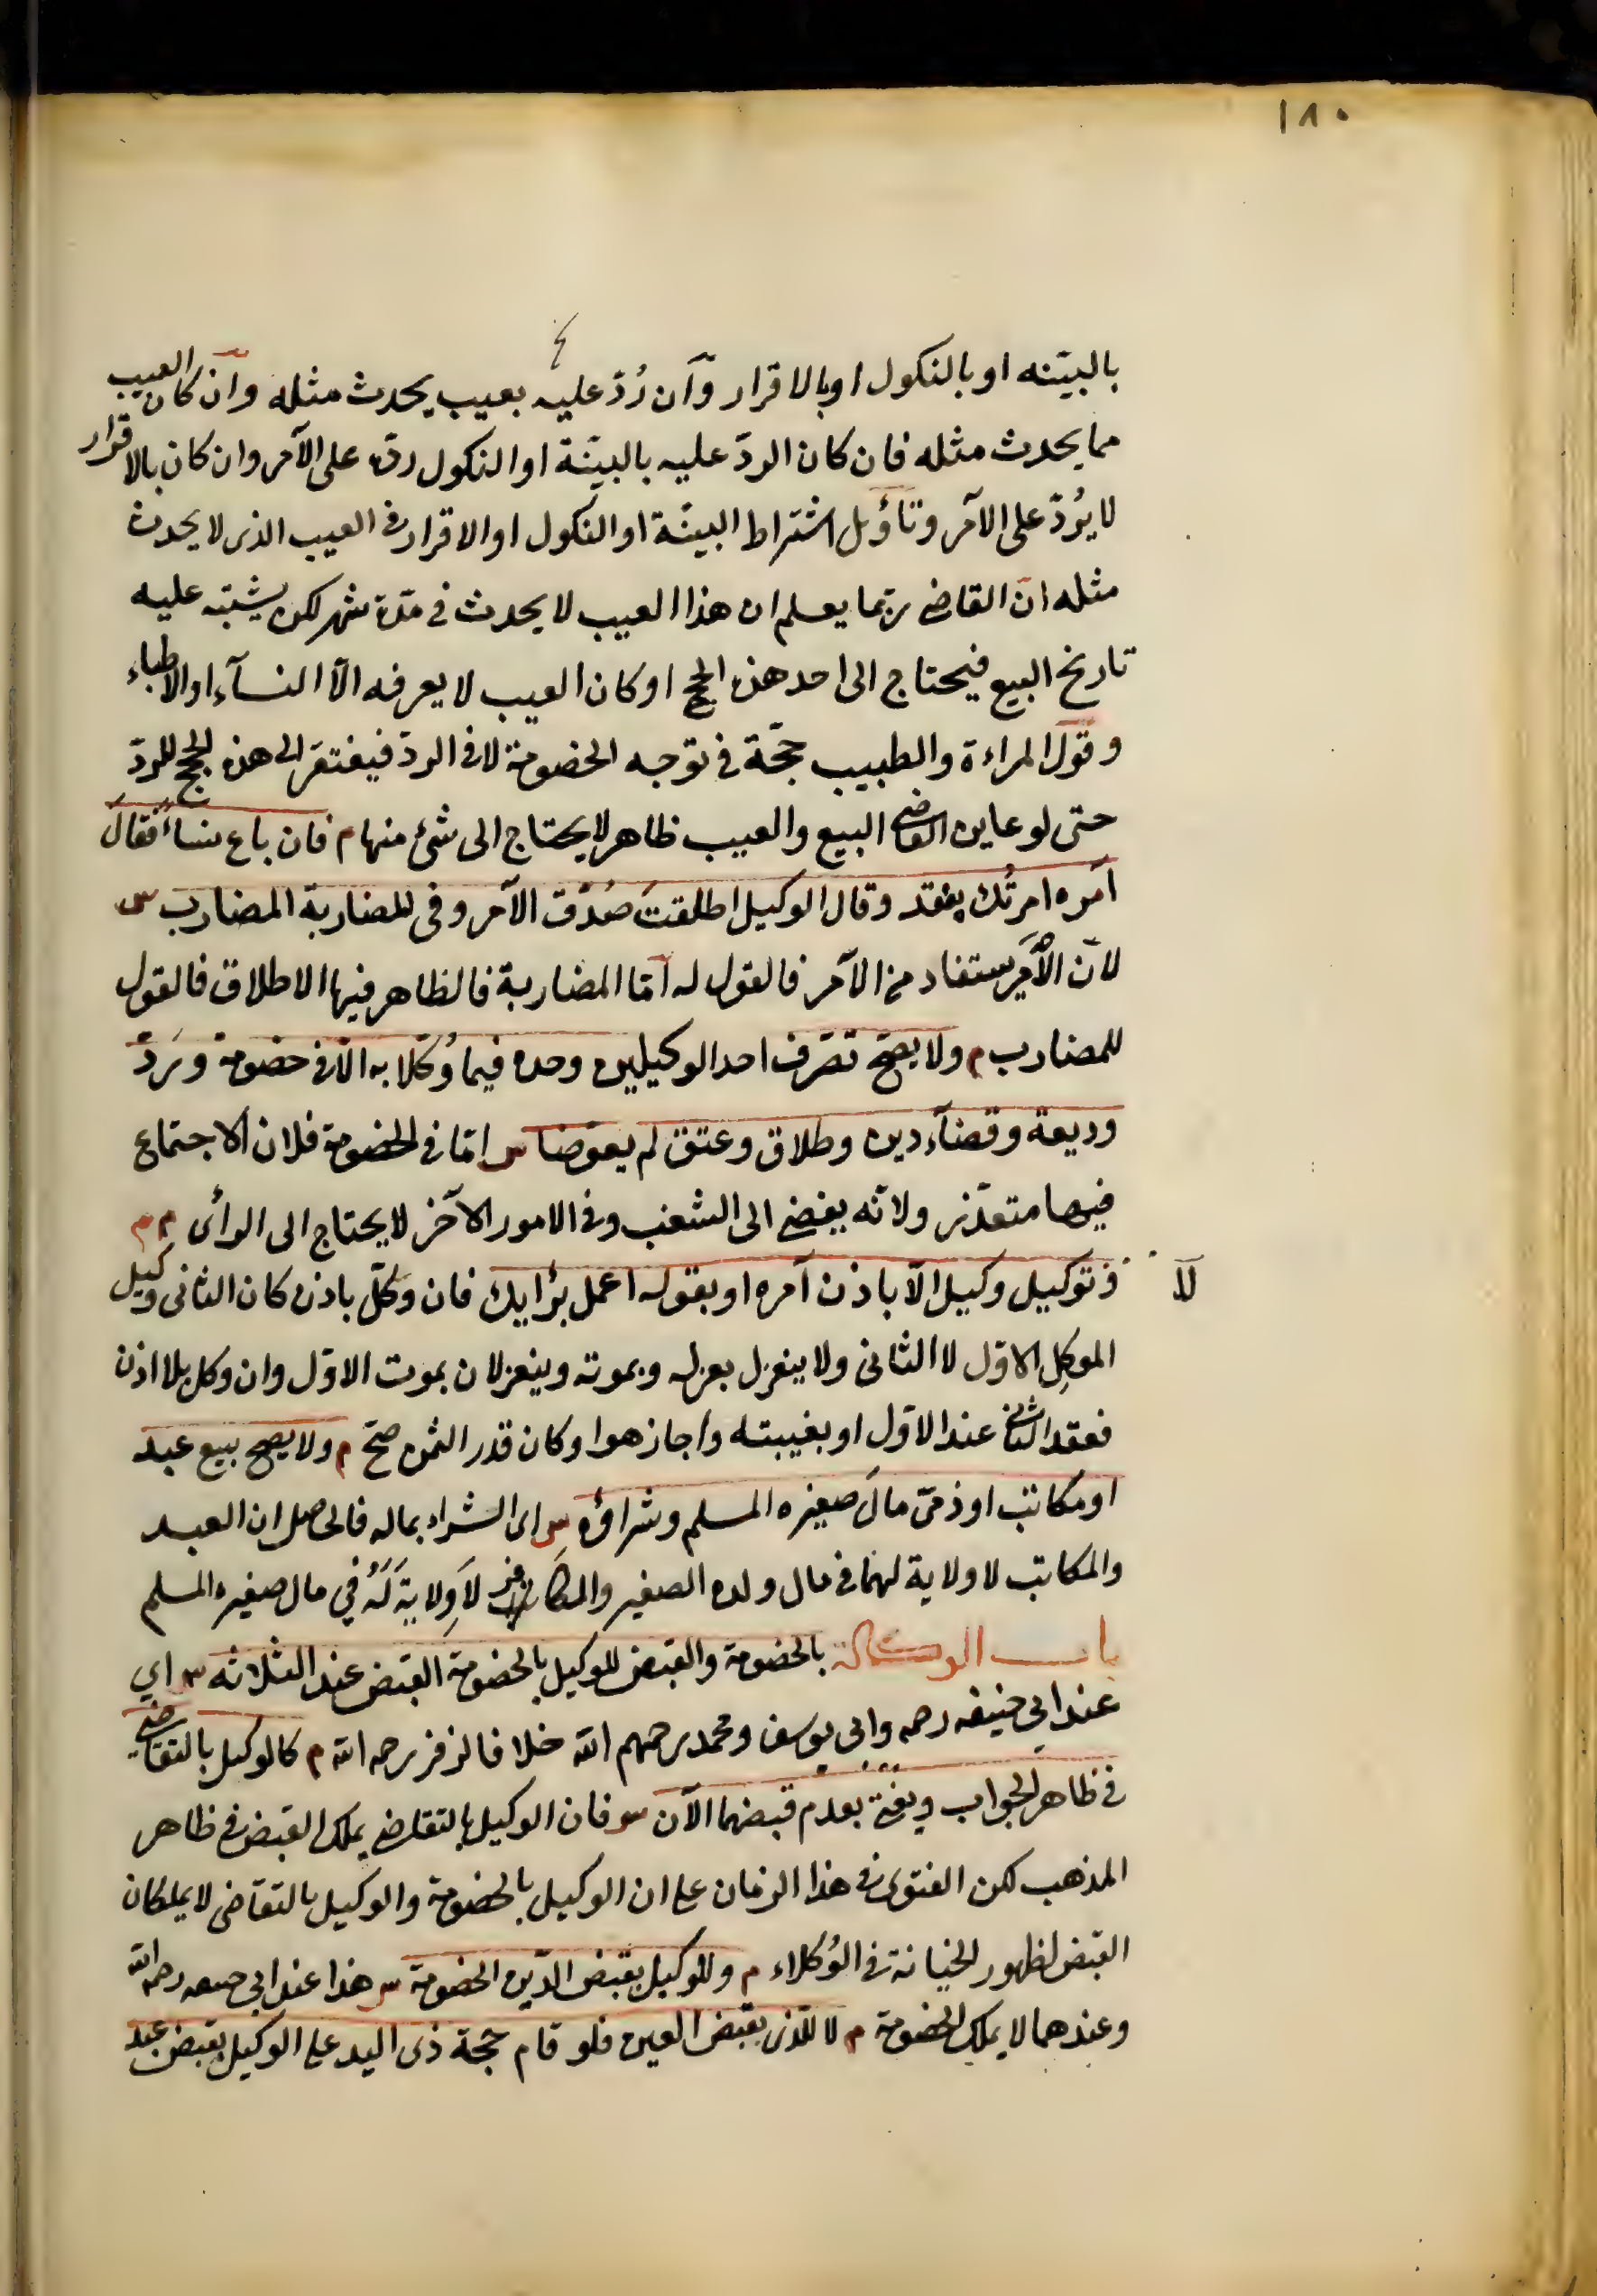 ١٨٠
بالبيّنه او بالنكول او بالاقرار وآن رُدّ عليه بعيب يحدث مثله وان كان العيب
مما يحدث مثله فان كان الردّ عليه بالبيّنة او النكول ردّه على الآمر وان كان بالاقرار
لا يُردّ على الآمر وتأويل اشتراط البينّة او النكول او الاقرار فى العيب الذى لا يحدث
مثله انّ القاضى ربّما يعلم ان هذا العيب لا يحدث فى مدّة شهر لكن يشتبه عليه
تاريخ البيع فيحتاج الى احد هذه الحجج او كان العيب لا يعرفه الّا النسآء او الاطباء
وقول المراءة والطبيب حجّة فى توجه الخصومة لا فى الردّ فيفتقر الى هذه الحجج للردّ
حتى لو عاين القاضى البيع والعيب ظاهر لا يحتاج الى شئ منها م فان باع نساءً فقال
آمره امرتُك بنقد وقال الوكيل اطلقتَ صُدّق الآمر وفى المضاربة المضارب س
لانّ الامر يستفاد من الآمر فالقول له امّا المضاربة فالظاهر فيها الاطلاق فالقول
للمضارب م ولا يصحّ تصّرف احد الوكيلين وحده فيما وُكّلا به الّا فى خصومة وردّ
وديعة وقضآء دين وطلاق وعتق لم يعوّضا س امّا فى الخصومة فلان الاجتماع
فيها متعذّر ولانّه يفضى الى الشغب وفى الامور الآخر لا يحتاج الى الرأى م م
لا
و توكيل وكيل الّا باذن آمره او بقوله اعمل برأيك فان وكّل باذن كان الثانى وكيل
الموكِل الاوّل لا الثانى ولا ينعزل بعزله وبموته وينعزلان بموت الاوّل وان وكل بلا اذن
فعقد الثانى عند الاوّل او بغيبته واجاز هو او كان قدر الثمن صحّ م ولا يصح بيع عبد
او مكاتب او ذمىّ مالَ صغيره المسلم وشراؤه س اى الشراء بماله فالحاصل ان العبد
والمكاتب لا ولاية لهما فى مال ولده الصغير والكافر لَا وِلَايةَ لَهُ فِي مال صغيره المسلم
باب الوكالة بالخصومة والقبض للوكيل بالخصومة القبض عند الثلاثه س اي
عند ابي حنيفه رحمه وابى يوسف ومحمد رحمهم الله خلافا لزفر رحمه الله م كالوكيل بالتقاضى
فى ظاهر الجواب ويفتى بعدم قبضهما الآن س فان الوكيل بالتقاضى يملك القبض فى ظاهر
المذهب لكن الفتوى فى هذا الزمان على ان الوكيل بالخصومة والوكيل بالتقاضى لا يملكان
القبض لظهور الخيانة فى الوُكلاء م وللوكيل بقبض الدّين الخصومة س هذا عند ابى حنيفه رحمه الله
وعندهما لا يملك الخصومة م لا للّذى بقبض العين فلو قام حجّة ذى اليد على الوكيل بقبض عبد